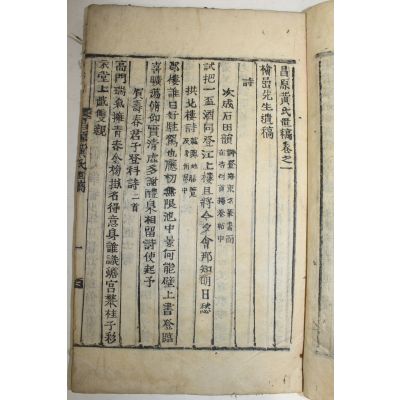 昌原黃氏世稿卷之一
檜先生遺稿
詩
次成石田韻
試把一盃酒同登江上樓且將今夕會那知明日愁
拱北樓詩
郡樓誰日好駐駕也應初無限池中景何能壁上書登臨
喜曠蕩俯仰賞清虛多謝醴泉相留詩使起予
賀壽春君子登科詩二首
高門瑞氣擁青春金榜掀名得意身誰識蟾宮攀桂子彩
衣堂上戲雙親
一